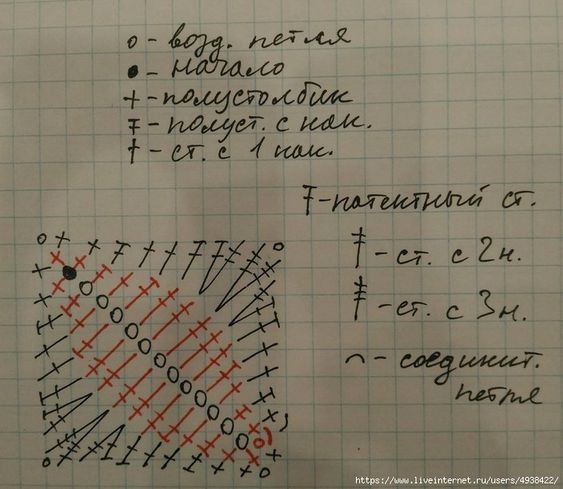 o - возд. петля
● - начало
+ - полустолбик
F - полуст. с нак.
† - ст. с 1 нак.
7 - патентный ст.
ǂ - ст. с 2н.
- ст. с 3н.
⌒ - соединит.
петля
https://www.liveinternet.ru/users/4938422/